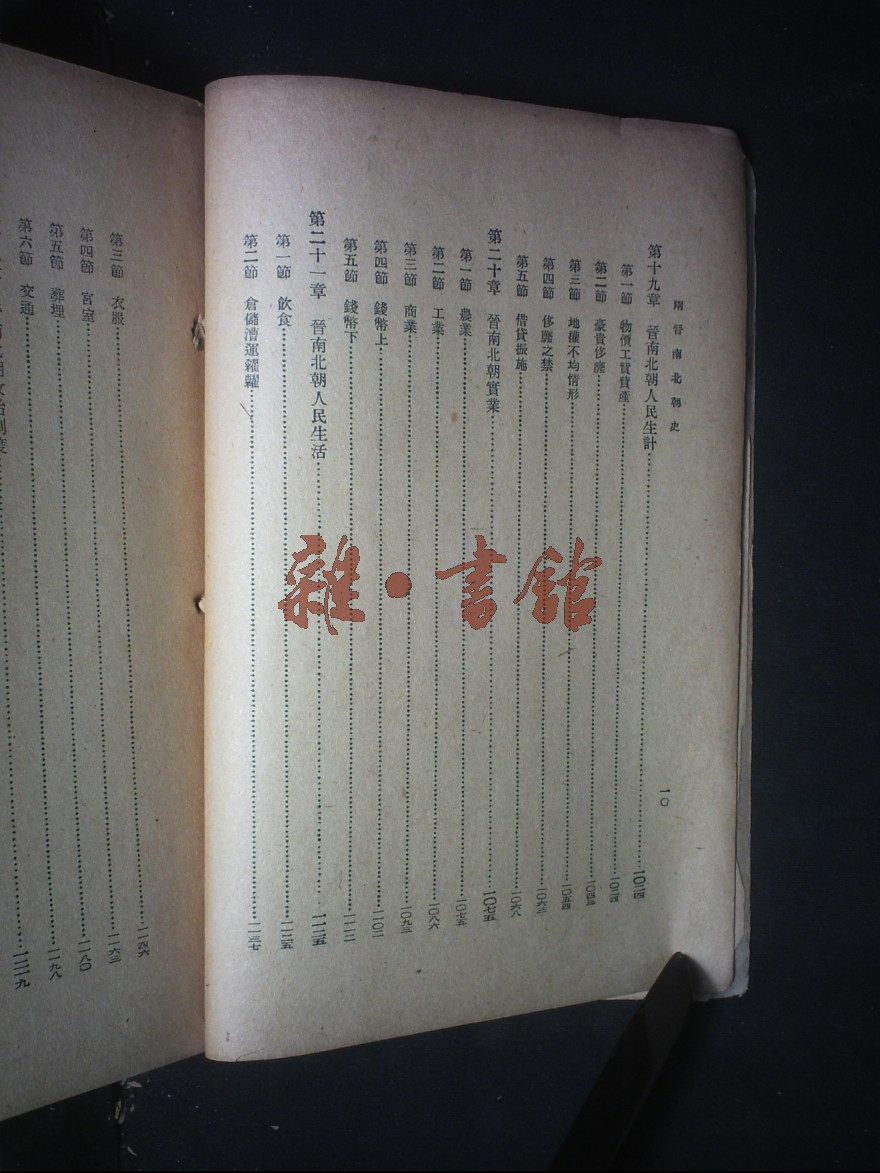 兩晉南北朝史
一〇
第十九章 晉南北朝人民生計……一〇二四
第一節 物價工資貲產……一〇二四
第二節 豪貴侈靡……一〇四三
第三節 地權不均情形……一〇五四
第四節 侈靡之禁……一〇六三
第五節 借貸振施……一〇六八
第二十章 晉南北朝實業……一〇七五
第一節 農業……一〇七五
第二節 工業……一〇八六
第三節 商業……一〇九三
第四節 錢幣上……一一〇二
第五節 錢幣下……一一一二
第二十一章 晉南北朝人民生活……一一二五
第一節 飲食……一一二五
第二節 倉儲漕運糴糶……一一三七
第三節 衣服……一一四六
第四節 宮室……一一六三
第五節 葬埋……一一八〇
第六節 交通……一一九八
南北朝政治制度……一二一九
雜·書館